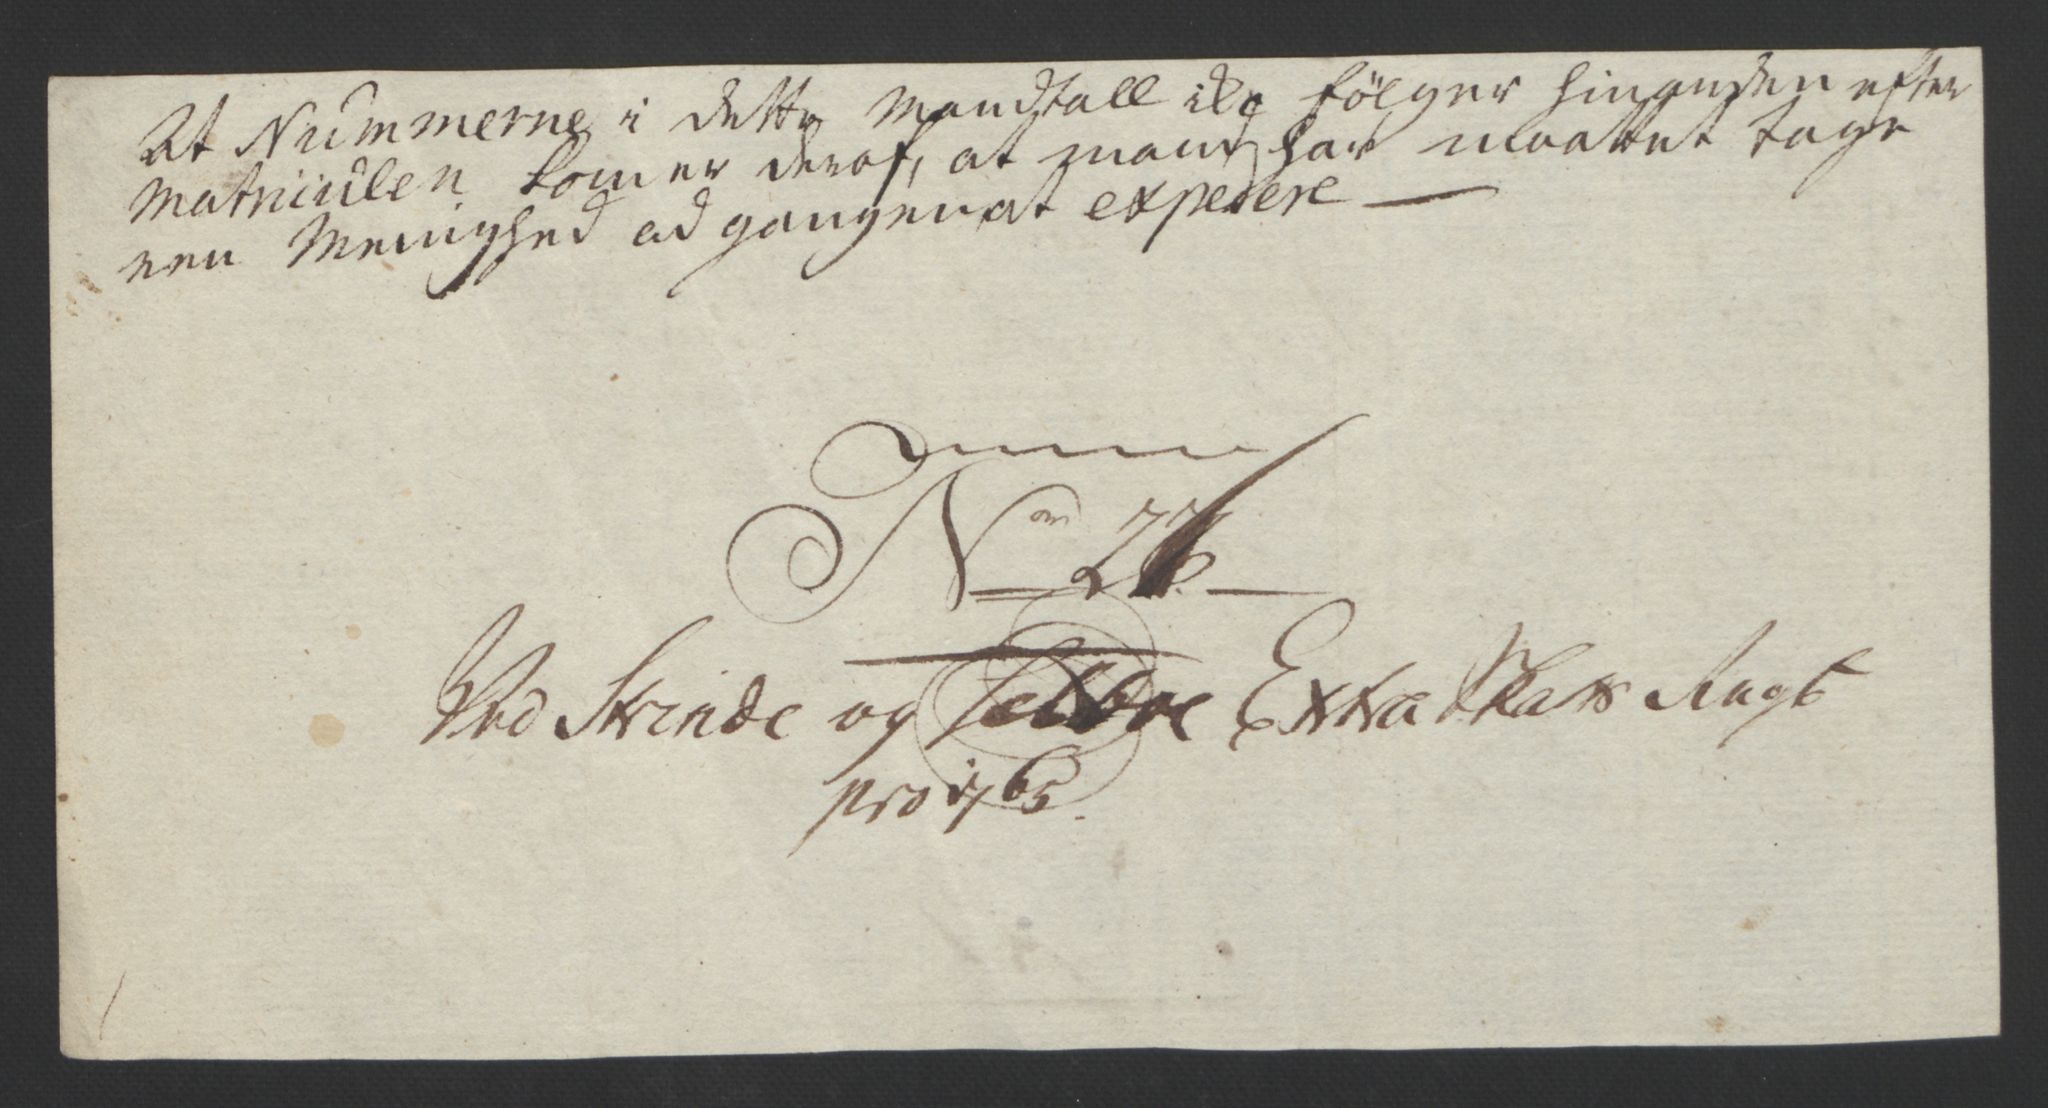 At Nummerne i dette Mandtall ike fölger hinanden efter
Matriculen komer deraf, at mand har maattet tage
een Menighed ad gangen at expedere
Nom 27
Ved Strinde og Selboe Extra Skatts Regb
pro 1765.